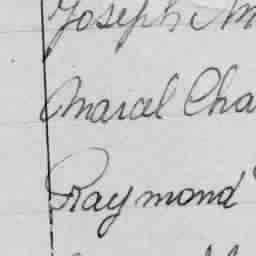 Joseph
Marcel Cha
Raymond